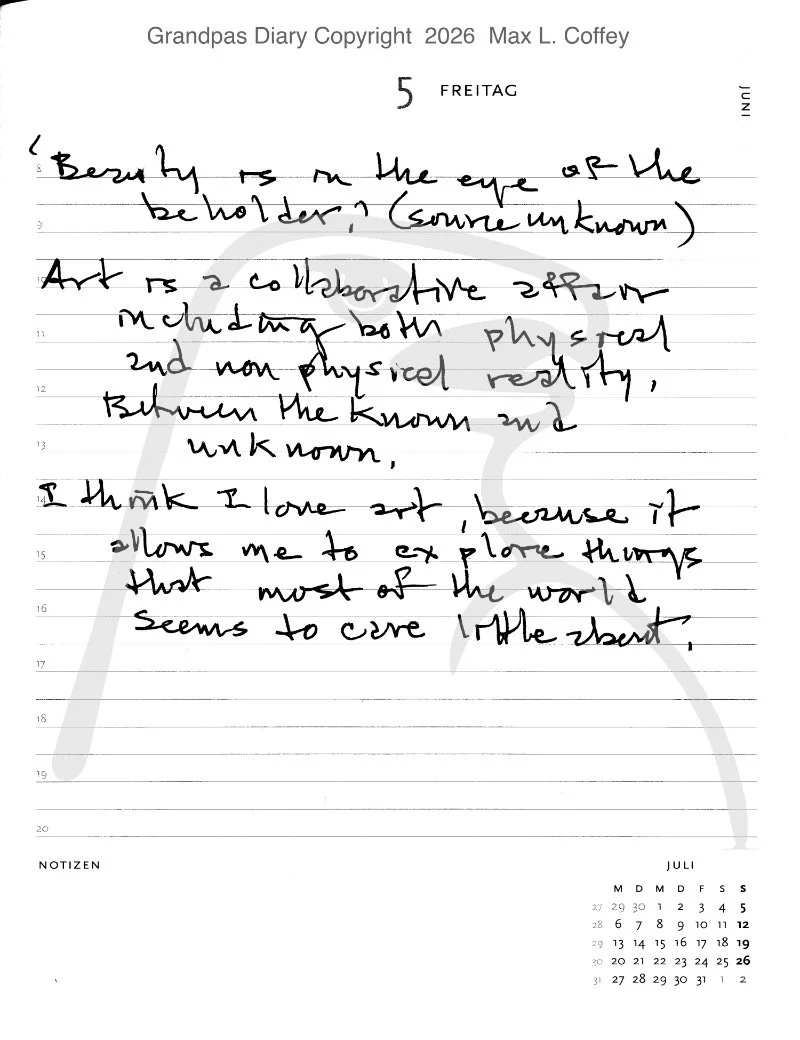 Grandpas Diary Copyright 2026 Max L. Coffey
5 FREITAG
JUNI
'Beauty is in the eye of the
beholder,' (source unknown)
Art is a collaborative affair
including both physical
and non physical reality,
Between the known and
unknown,
I think I love art, because it
allows me to explore things
that most of the world
seems to care little about,
8
9
10
11
12
13
14
15
16
17
18
19
20
NOTIZEN
JULI
M D M D F S S
27 29 30 1 2 3 4 5
28 6 7 8 9 10 11 12
29 13 14 15 16 17 18 19
30 20 21 22 23 24 25 26
31 27 28 29 30 31 1 2